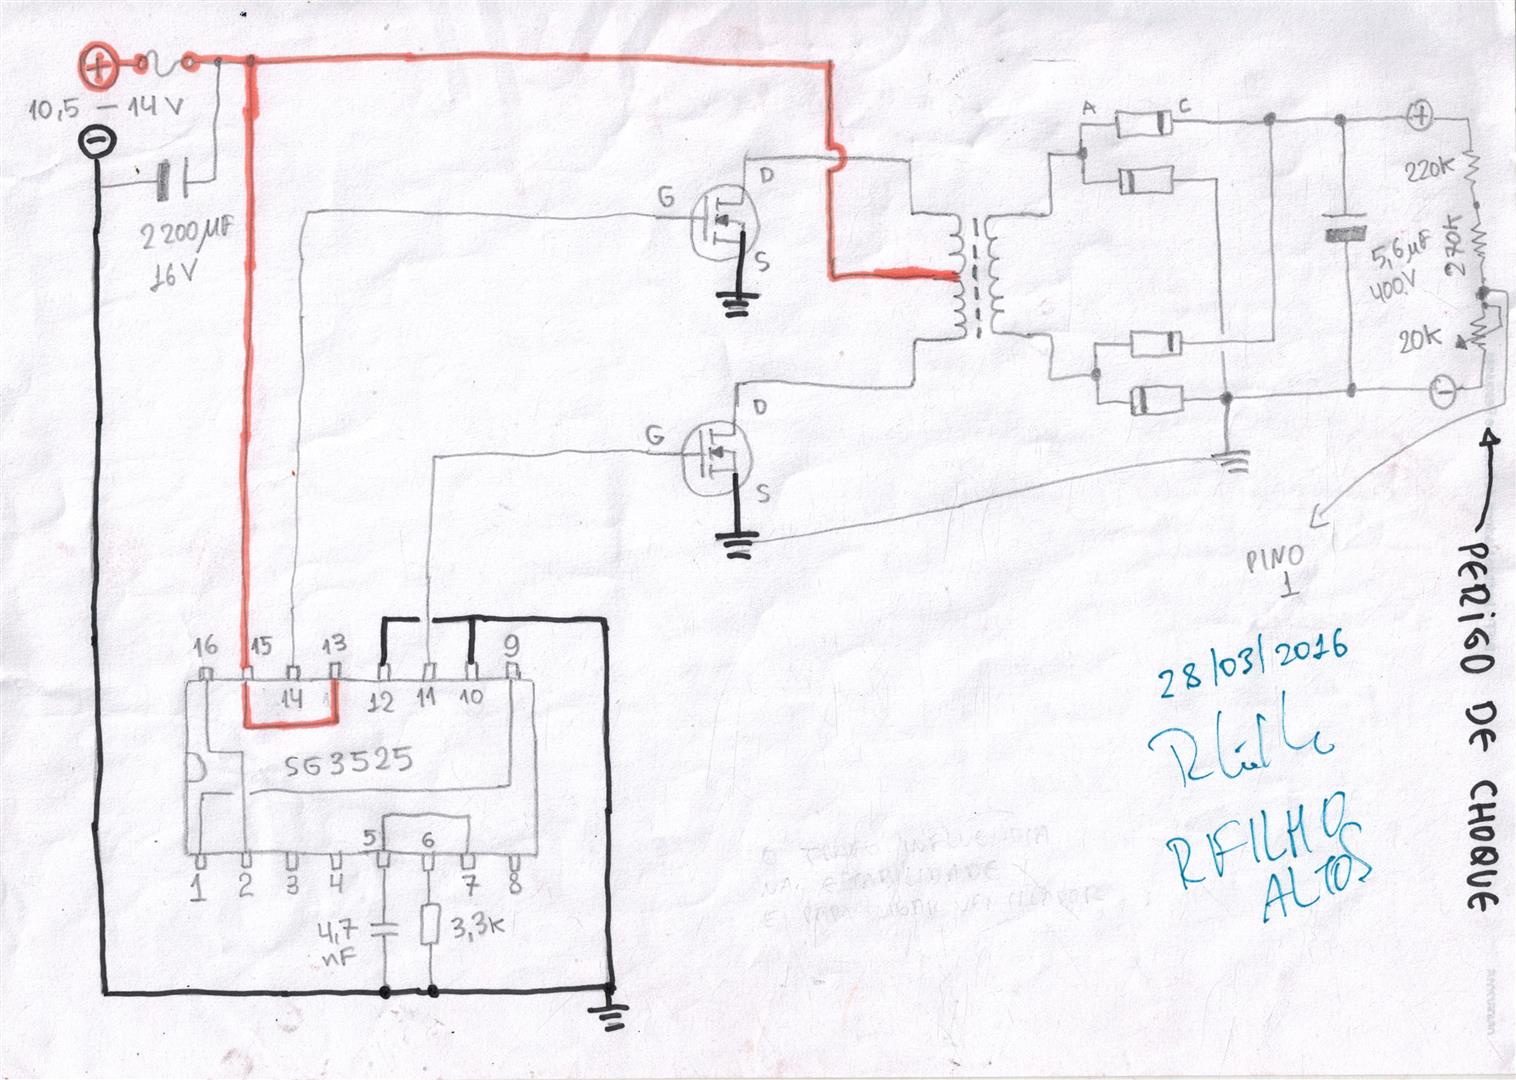 10,5 – 14V
2200µF
16V
G
D
S
G
D
S
A
C
220K
270K
5,6µF
400V
20K
PINO
1
PERIGO DE CHOQUE
16
15
14
13
12
11
10
9
SG3525
1
2
3
4
5
6
7
8
4,7
nF
3,3K
28/03/2016
RFILHO
ALTOS